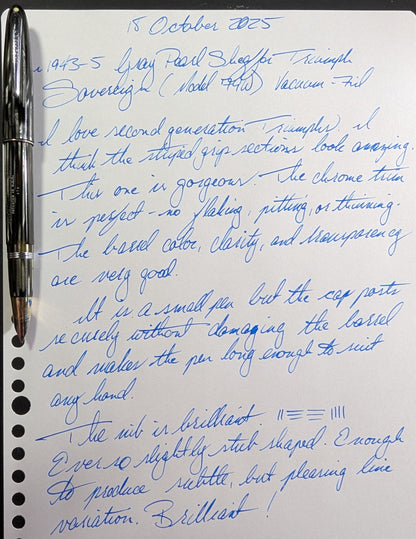 18 October 2025
1943-5 Gray Pearl Sheaffer Triumph
Sovereign (Model Vacuum-Fil
I love second generation Triumphs. I
think the striped grip sections look amazing.
This one is gorgeous. The chrome trim
is perfect - no flaking, pitting, or thinning.
The barrel color, clarity, and transparency
are very good.
It is a small pen but the cap posts
securely without damaging the barrel
and makes the pen long enough to suit
any hand.
The nib is brilliant
Ever so slightly stub shaped. Enough
to produce subtle, but pleasing line
variation. Brilliant!